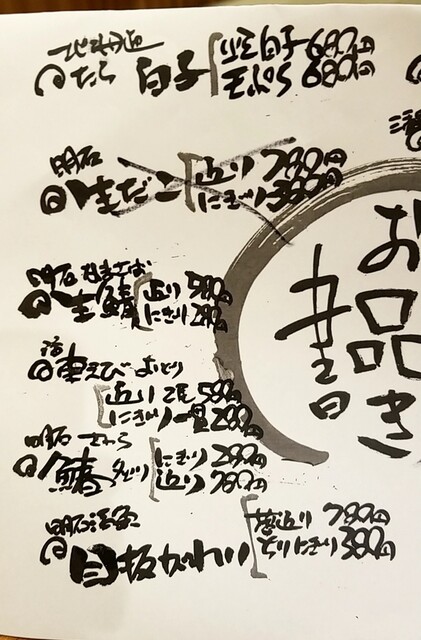 北海道
たら 白子 塩白子 680円
天ぷら 680円
明石
生だこ 造り 780円
にぎり 380円
明石
生鯖 造り 580円
にぎり 280円
活
車えび おどり
造り 2尾 580円
にぎり一貫 280円
明石 さわら
鰆 たたり にぎり 280円
造り 780円
明石活〆
目板がれい 造り 780円
にぎり 380円
お品書き